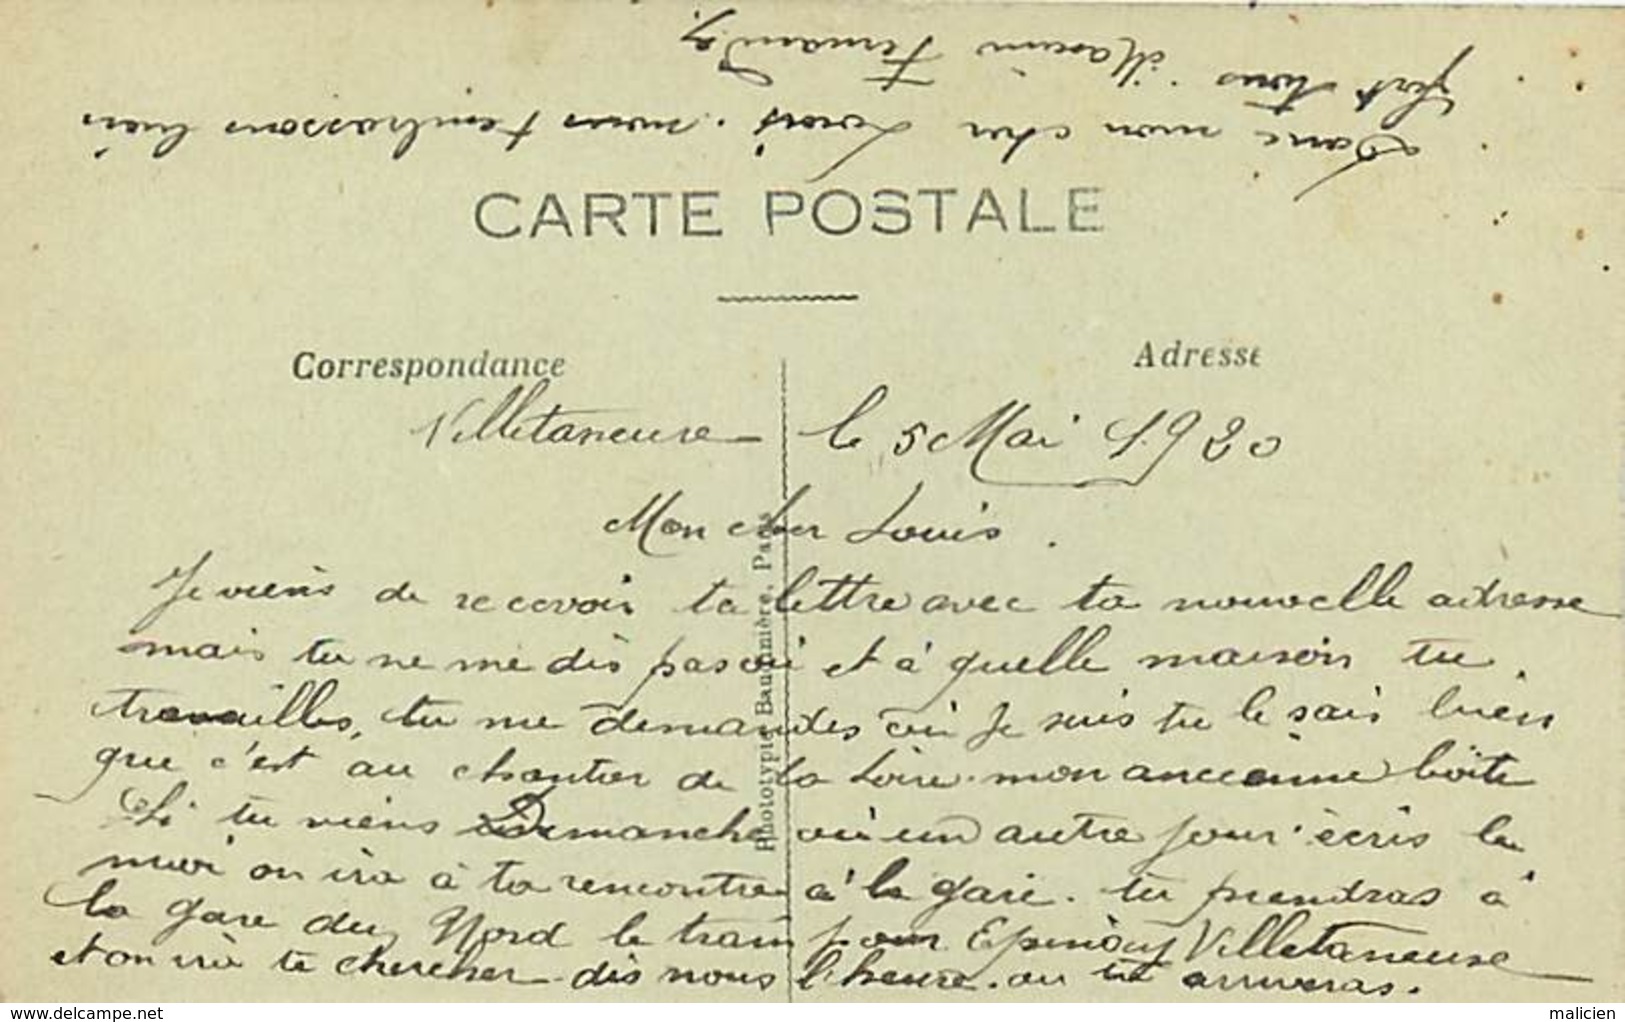 Donc mon cher Louis. nous t'embrassons bien
fort tous. Maxim Fernandez
CARTE POSTALE
Correspondance
Adresse
Villetaneuse le 5 Mai 1920
Mon cher Louis.
Je viens de recevoir ta lettre avec ta nouvelle adresse
mais tu ne me dis pas où et à quelle maison tu
travailles, tu me demandes où je suis tu le sais bien
que c'est au chantier de la Loire. mon ancienne boite
Si tu viens Dimanche où un autre jour. écris le
moi on ira à ta rencontre à la gare. tu prendras à
la gare du Nord le train pour Epinay Villetaneuse
et on ira te chercher dis nous l'heure. ou tu arriveras.
Phototypie Baudinière, Paris
www.delcampe.net
malicien